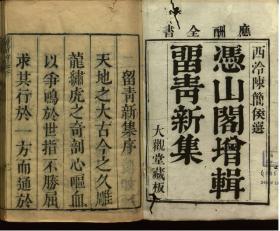 應酬全書
西泠陳簡侯選
憑山閣增輯
留青新集
大觀堂藏板
留青新集序
天地之大古今之久雕
龍繡虎之奇剖心嘔血
以爭鳴於世指不勝屈
求其行於一方而通於